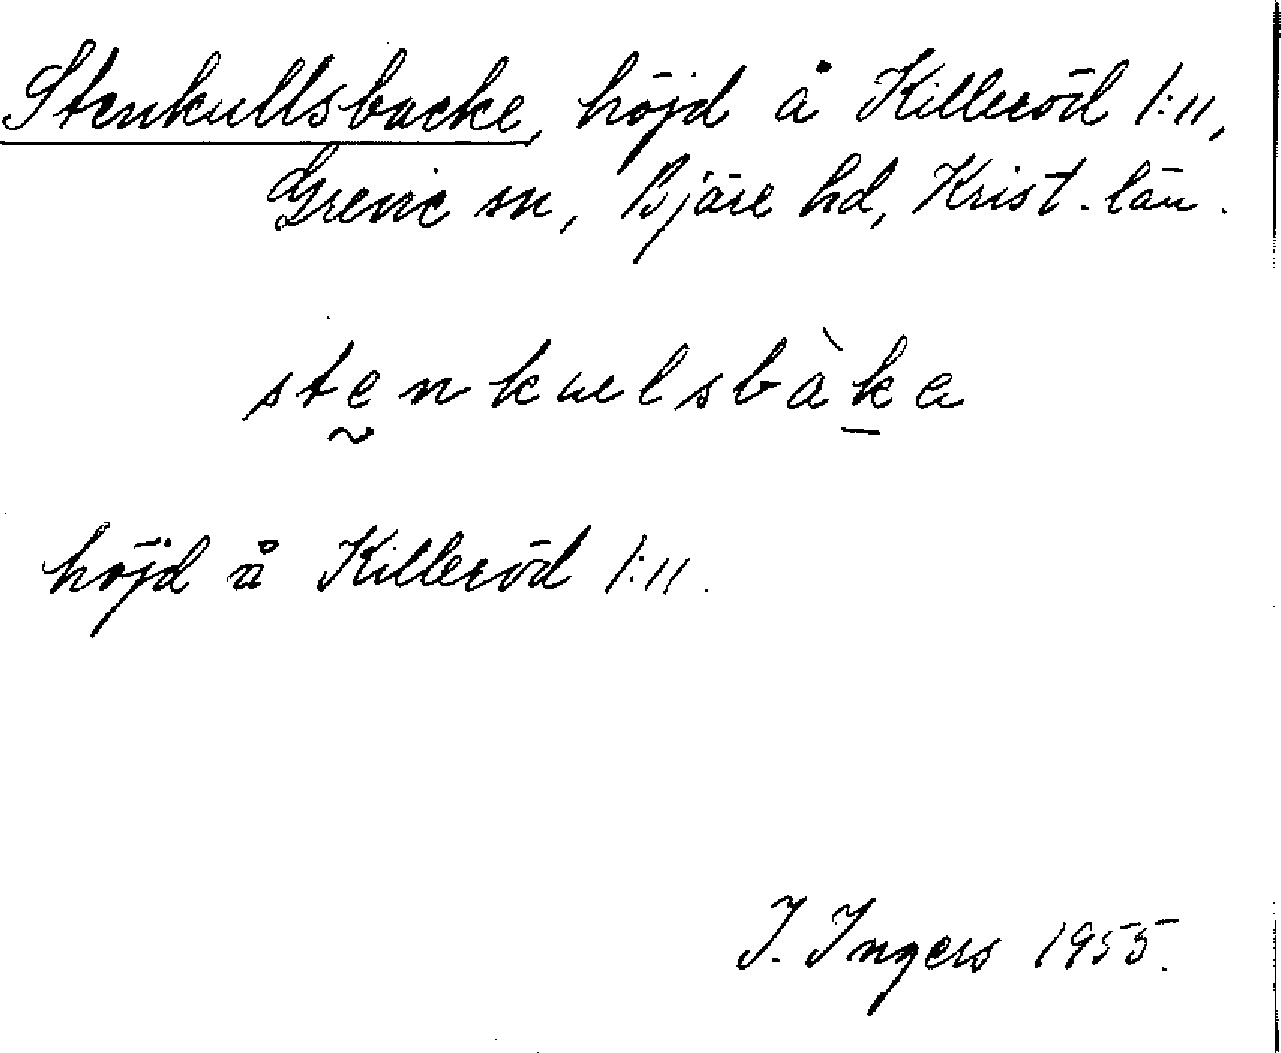 Stenkullsbacke, höjd å Killeröd 1:11,
Grevie sn, Bjäre hd, Krist. län.
stḛnkuelsbàḵe
höjd å Killeröd 1:11.
I. Ingers 1955.